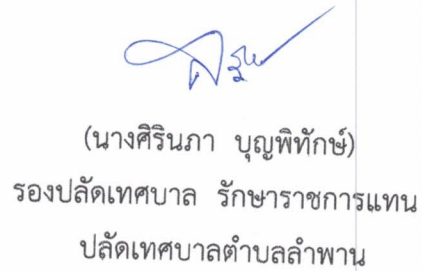 (นางศิรินภา บุญพิทักษ์)
รองปลัดเทศบาล รักษาราชการแทน
ปลัดเทศบาลตำบลลำพาน